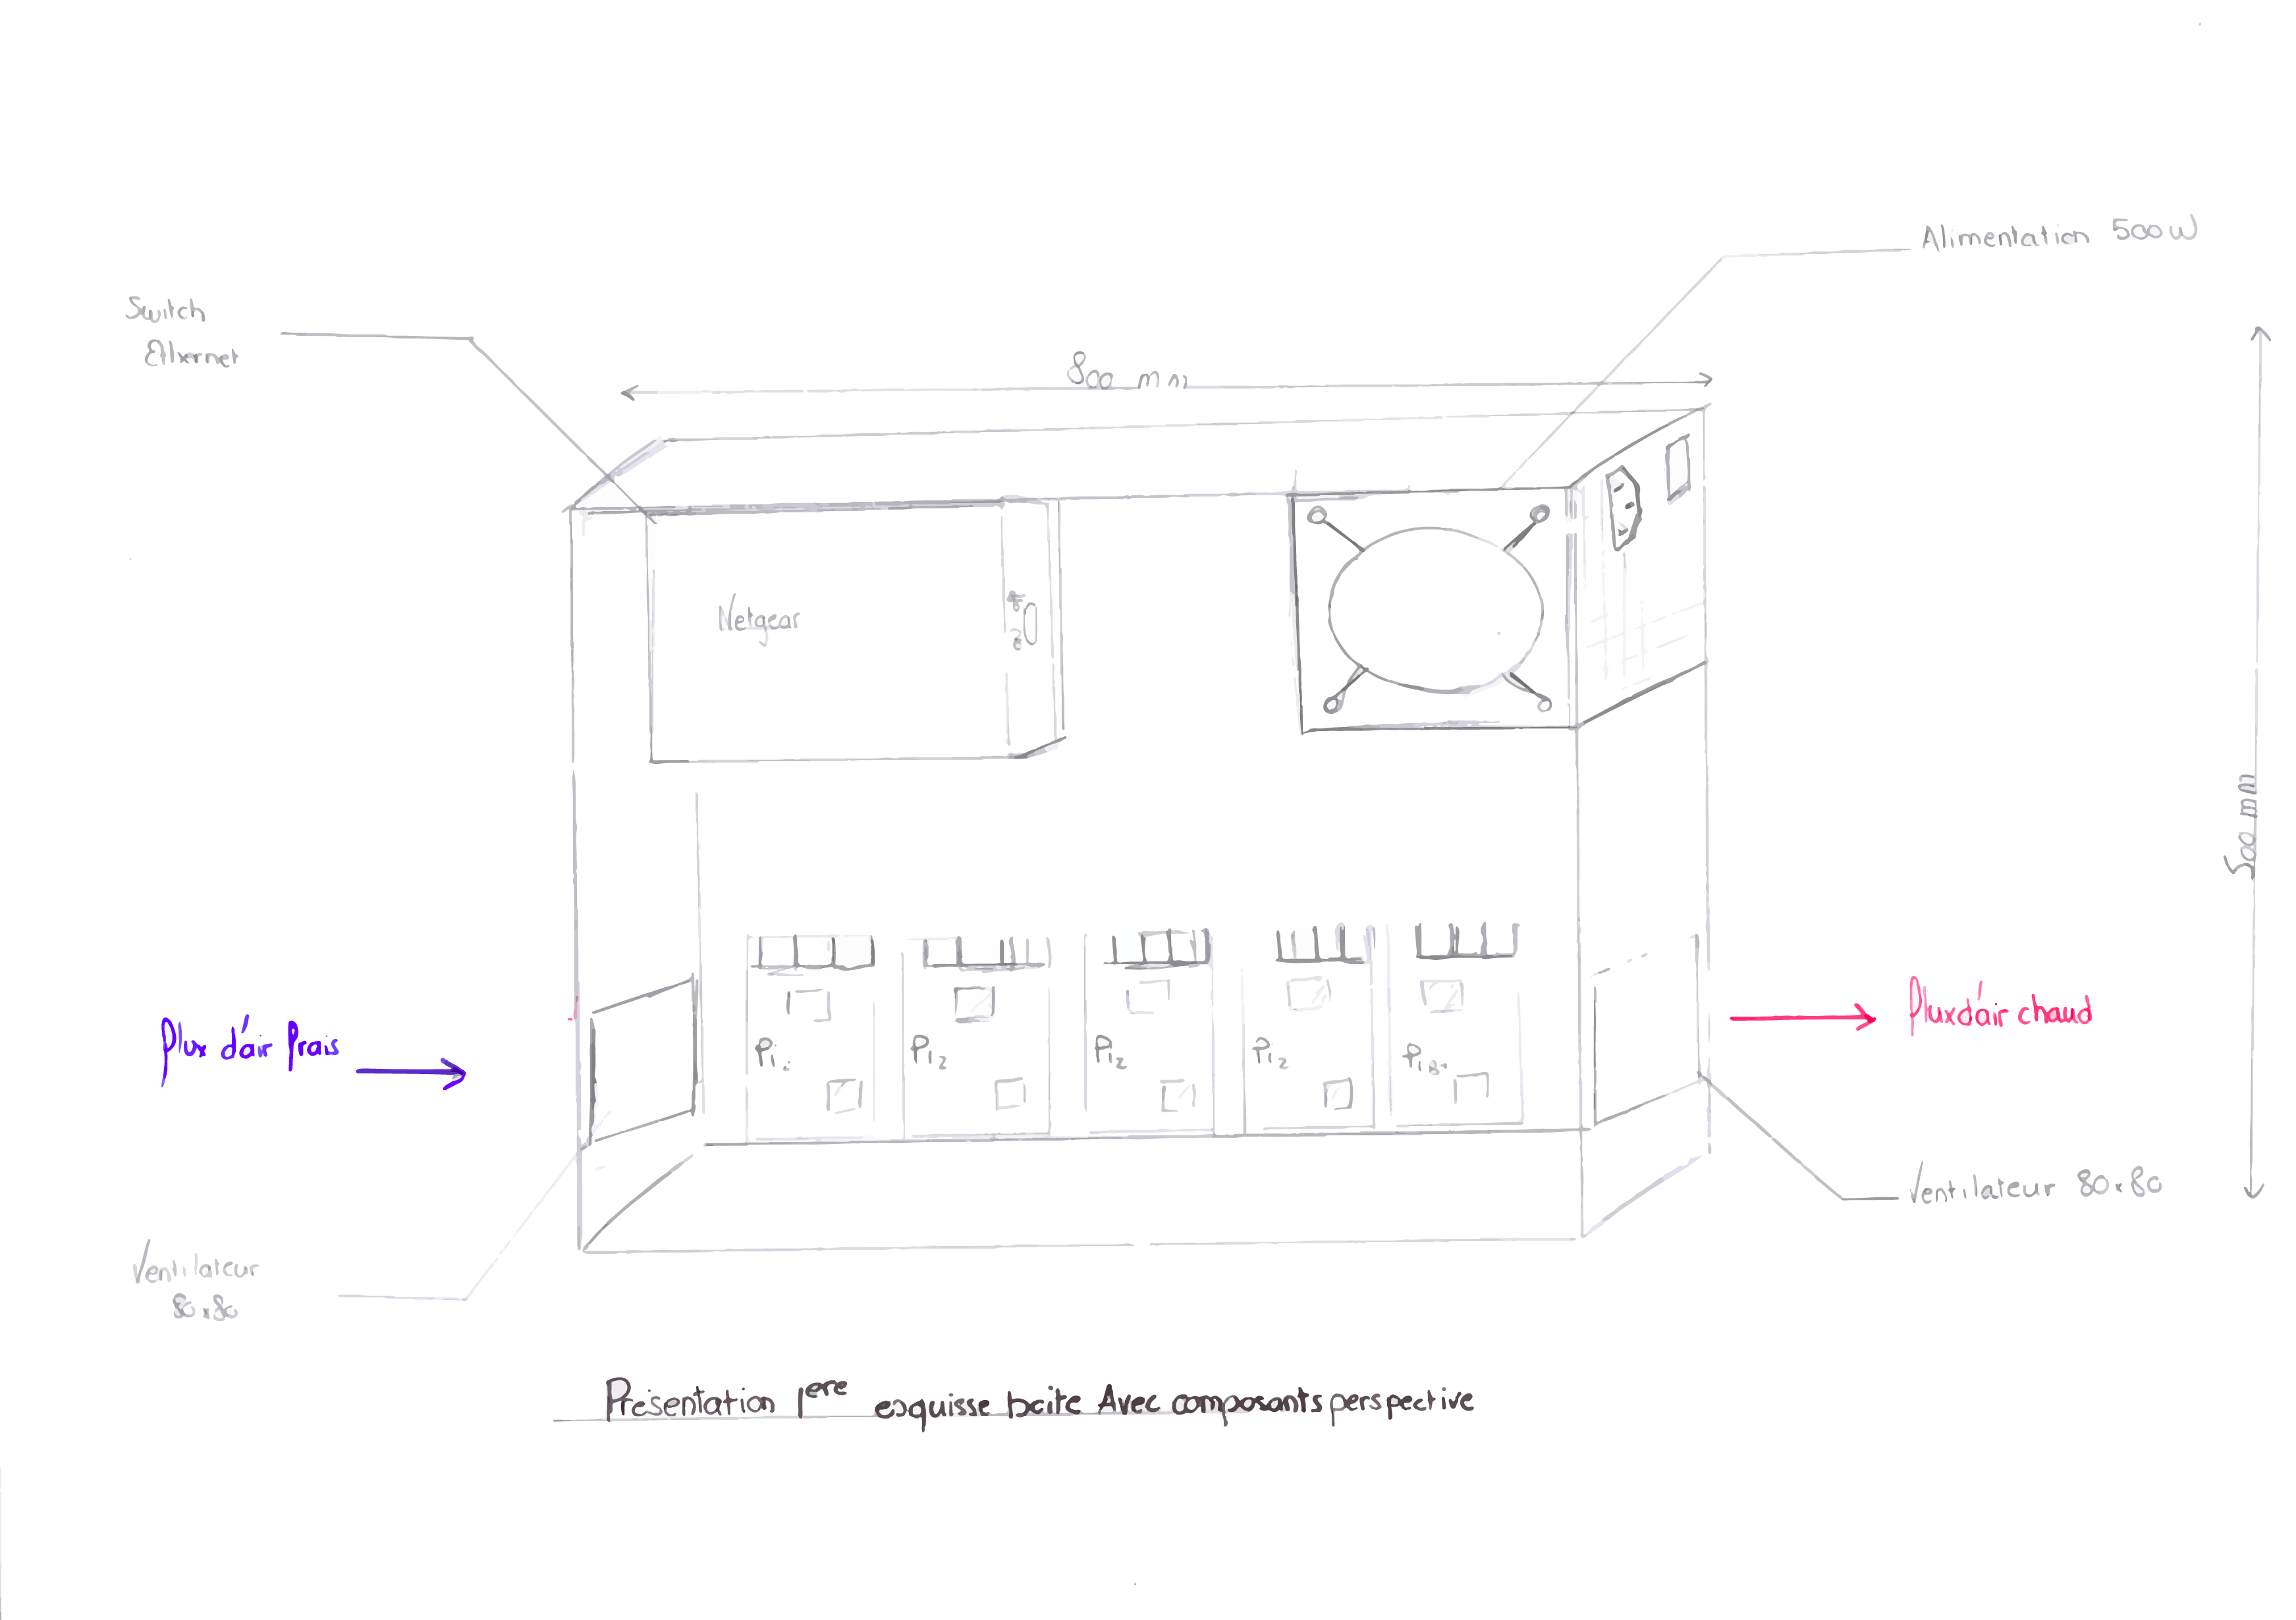 Alimentation 500W
Switch
Ethernet
800 mm
Netgear
500 mm
Pi2
Pi2
Pi2
Flux d'air frais
Flux d'air chaud
Ventilateur 80x80
Ventilateur
80x80
Présentation 1ere esquisse boite Avec composants perspective